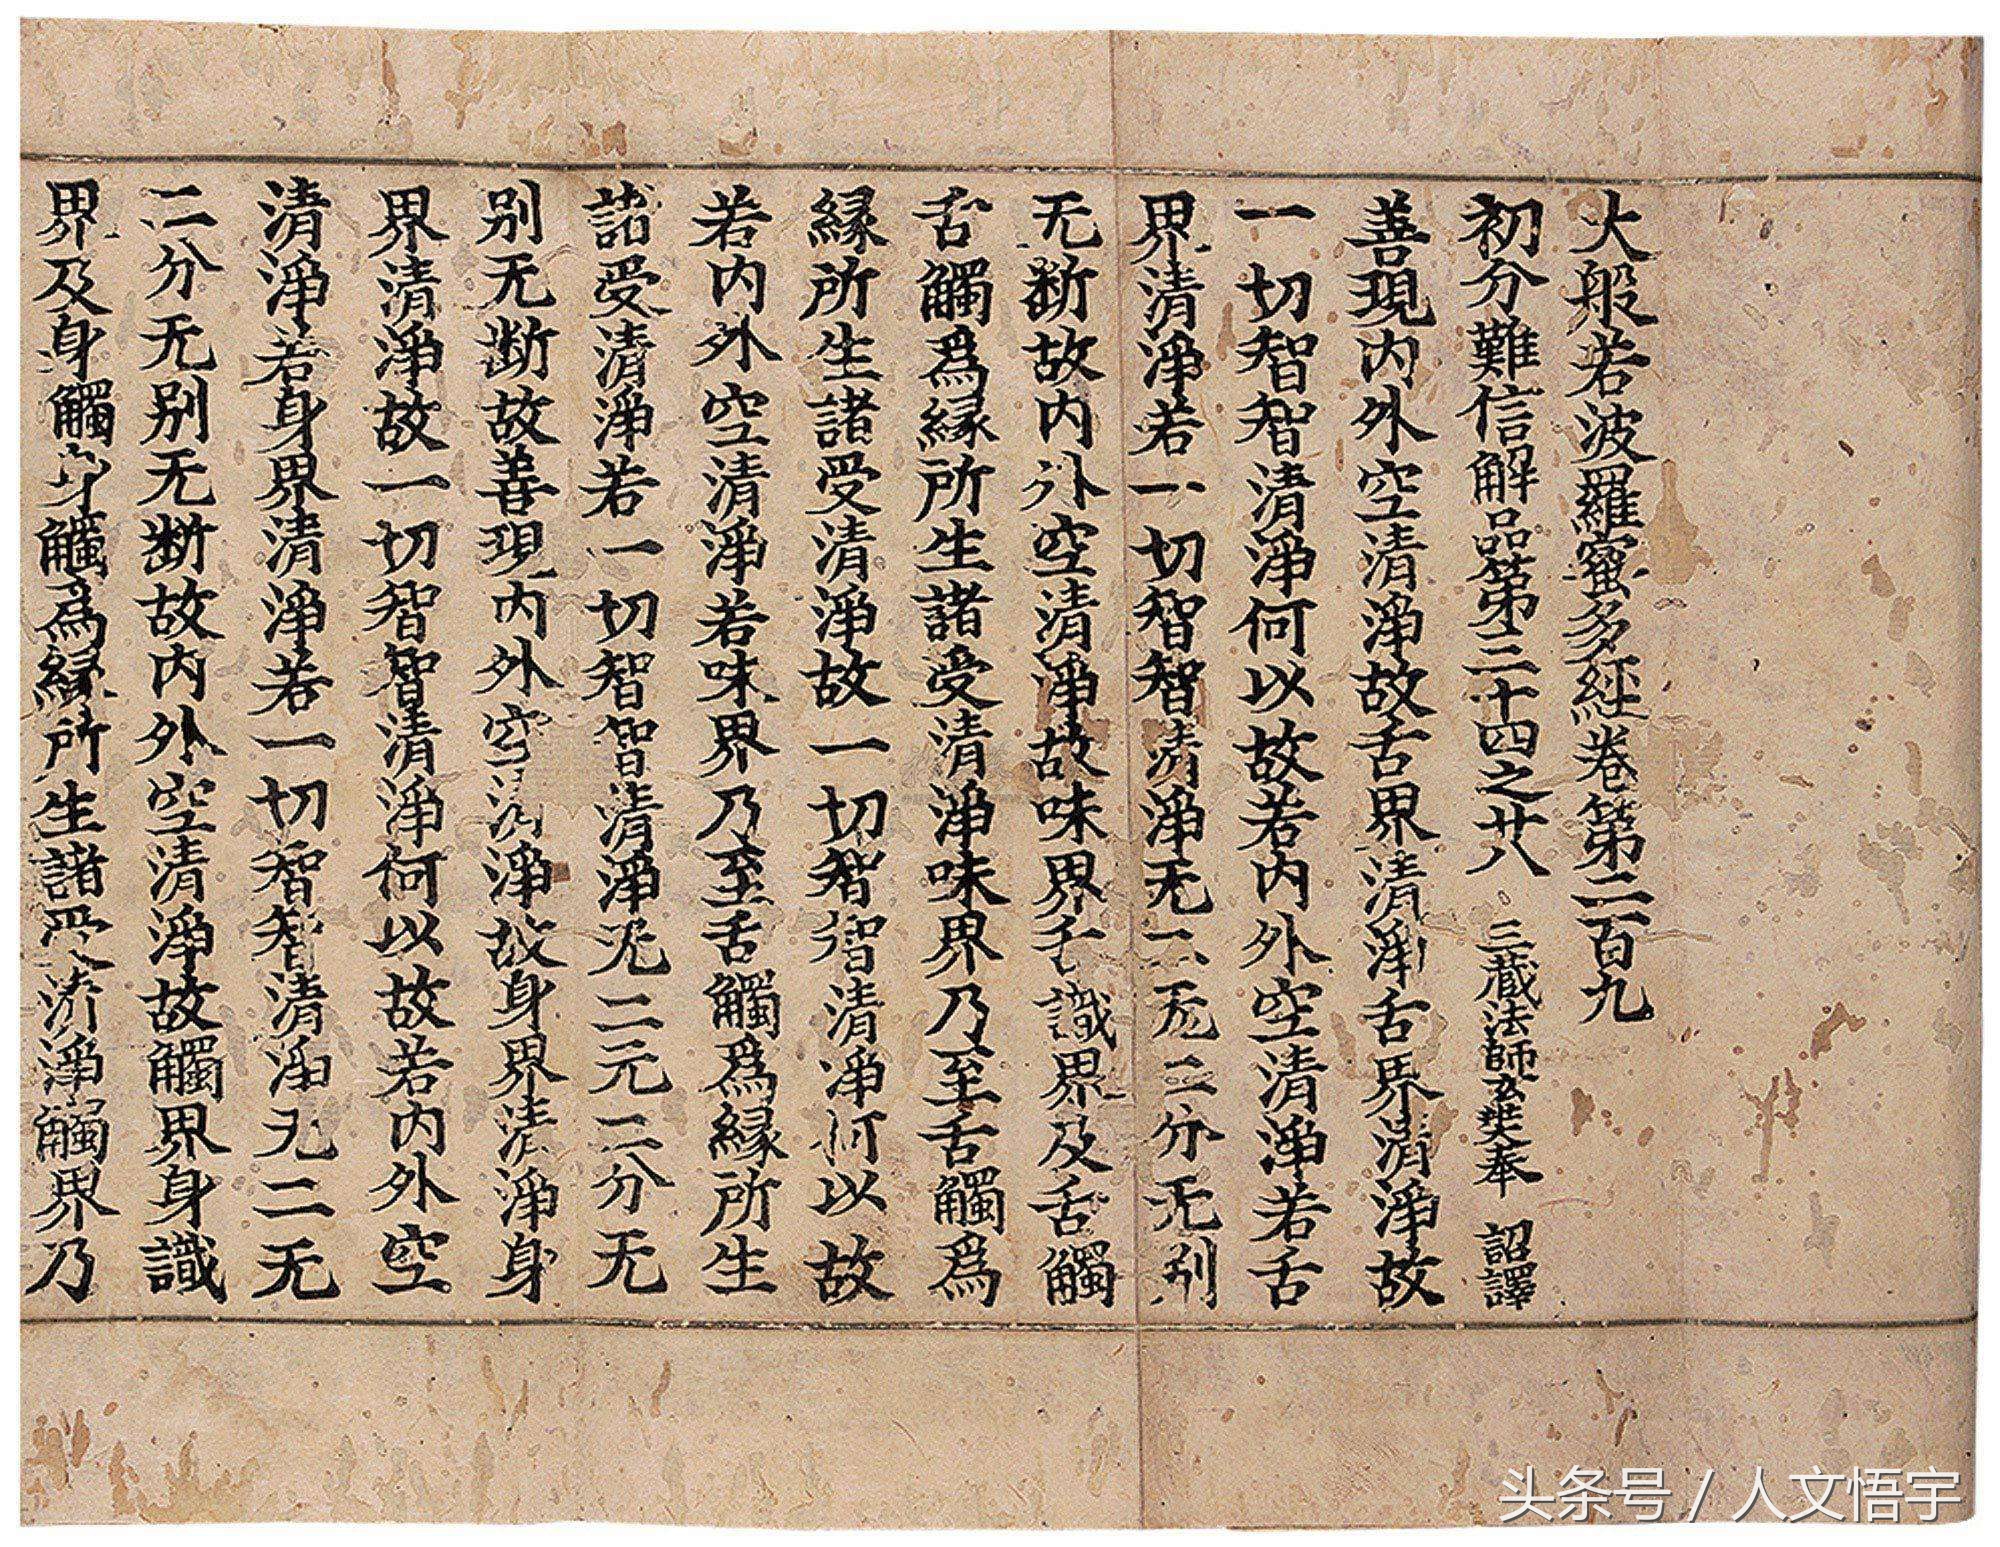 大般若波羅蜜多經卷第二百九
初分難信解品第三十四之廿八 三藏法師玄奘奉 詔譯
善現内外空清淨故舌界清淨舌界清淨故
一切智智清淨何以故若内外空清淨若舌
界清淨若一切智智清淨无二无二分无别
无断故内外空清淨故味界舌識界及舌觸
舌觸爲縁所生諸受清淨味界乃至舌觸爲
縁所生諸受清淨故一切智智清淨何以故
若内外空清淨若味界乃至舌觸爲縁所生
諸受清淨若一切智智清淨无二无二分无
别无断故善現内外空清淨故身界清淨身
界清淨故一切智智清淨何以故若内外空
清淨若身界清淨若一切智智清淨无二无
二分无别无断故内外空清淨故觸界身識
界及身觸身觸爲縁所生諸受清淨觸界乃
头条号 / 人文悟宇